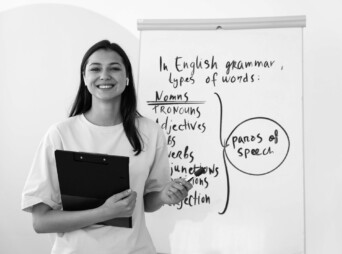 In English grammar,
types of words:
Nouns
PRONOUNS
Adjectives
bs
verbs
junctions
ions
jection
paros of
speech